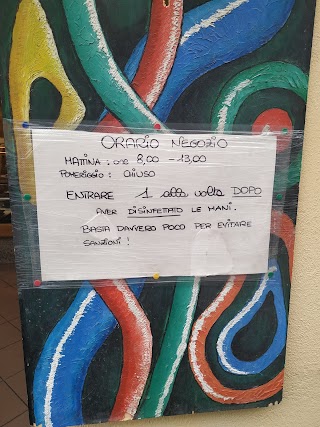 ORARIO NEGOZIO
MATTINA : ore 8,00 - 13,00
POMERIGGIO : CHIUSO
ENTRARE 1 alla volta DOPO
AVER DISINFETTATO LE MANI.
BASTA DAVVERO POCO PER EVITARE
SANZIONI !